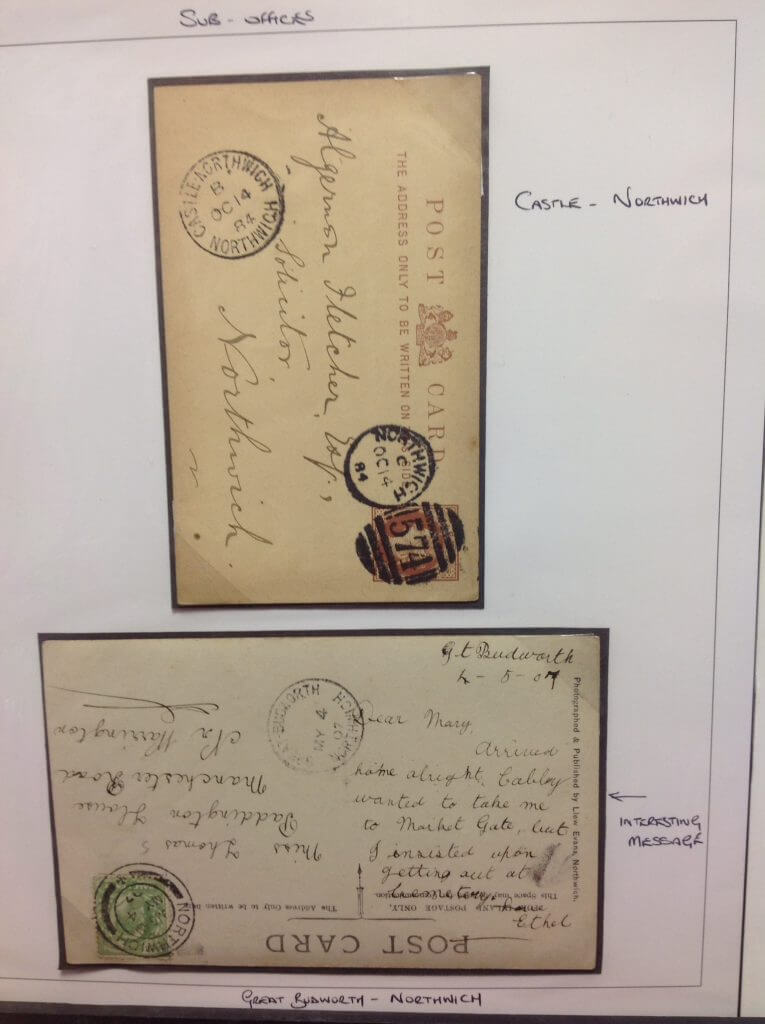 SUB - OFFICES
CASTLE - NORTHWICH
POST CARD
THE ADDRESS ONLY TO BE WRITTEN ON
Algernon Fletcher, Esq.,
Solicitor
Northwich.
CASTLE-NORTHWICH
B
OC 14
84
NORTHWICH
NORTHWICH
C
OC 14
84
574
Gt Budworth
4 - 5 - 07
Dear Mary,
Arrived
home alright, Cabby
wanted to take me
to Market Gate, but
I insisted upon
getting out at
Cemetery.
Ethel
Photographed & Published by Llew Evans, Northwich.
INTERESTING
MESSAGE
POST CARD
The Address Only to be Written
INLAND POSTAGE ONLY.
This Space may
Communication
Miss Thomas
Paddington House
Manchester Road
Nr Warrington
BUDWORTH
MY 4
07
NORTHWICH
NORTHWICH
GREAT BUDWORTH - NORTHWICH